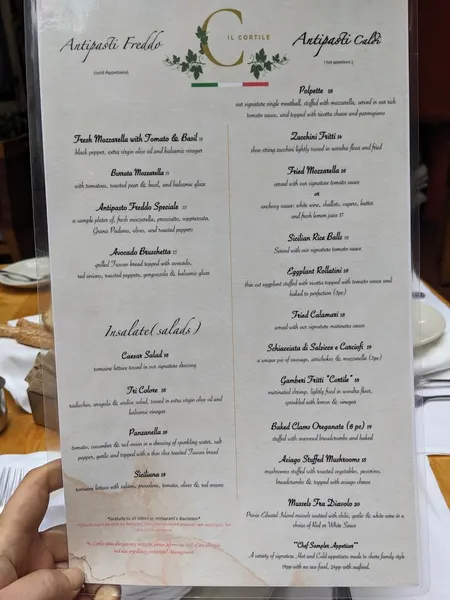 Antipasti Freddo
(cold Appetizers)
C IL CORTILE
Antipasti Caldi
(hot appetizers)
Fresh Mozzarella with Tomato & Basil
black pepper, extra virgin olive oil and balsamic vinegar
Burrata Mozzarella
with tomatoes, roasted pear & basil, and balsamic glaze
Antipasto Freddo Speciale
a sample plater of, fresh mozzarella, prosciutto, soppressata,
Grana Padano, olives, and roasted peppers
Avocado Bruschetta
grilled Tuscan bread topped with avocado,
red onions, roasted peppers, gorgonzola & balsamic glaze
Insalate(salads)
Caesar Salad
romaine lettuce tossed in our signature dressing
Tri Colore
radicchio, arugola & endive salad, tossed in extra virgin olive oil and
balsamic vinegar
Panzanella
tomato, cucumber & red onion in a dressing of sparkling water, red
pepper, garlic and topped with a thin slice toasted Tuscan bread
Siciliana
romaine lettuce with salami, provolone, tomato, olives & red onions
Polpette
our signature single meatball, stuffed with mozzarella, served in our rich
tomato sauce, and topped with ricotta cheese and parmigiano
Zucchini Fritti
shoe-string zucchini lightly tossed in wondra flour and fried
Fried Mozzarella
served with our signature tomato sauce
or
anchovy sauce: white wine, shallots, capers, butter
and fresh lemon juice 17
Sicilian Rice Balls
Served with our signature tomato sauce
Eggplant Rollatini
thin cut eggplant stuffed with ricotta topped with tomato sauce and
baked to perfection (3pc)
Fried Calamari
served with our signature marinara sauce
Schiacciata di Salsicce e Carciofi 19
a unique pie of sausage, artichokes & mozzarella (2pc)
Gamberi Fritti "Cortile"
marinated shrimp, lightly fried in wondra flour,
sprinkled with lemon & vinegar
Baked Clams Oreganata (6 pc)
stuffed with seasoned breadcrumbs and baked
Asiago Stuffed Mushrooms
mushrooms stuffed with roasted vegetables, pecorino,
breadcrumbs & topped with asiago cheese
Mussels Fra Diavolo
Prince Edward Island mussels sauteed with chilis, garlic & white wine in a
choice of Red or White Sauce
**Chef Sampler Appetizer**
A variety of signature Hot and Cold appetizers made to share family style
19pp with no sea food, 24pp with seafood.